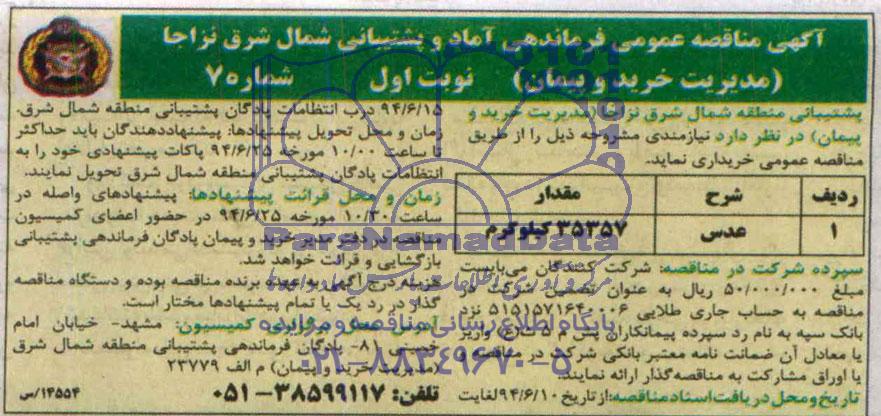 آگهی مناقصه عمومی فرماندهی آماد و پشتیبانی شمال شرق نزاجا
(مدیریت خرید و پیمان) نوبت اول شماره ۷
پشتیبانی منطقه شمال شرق نزاجا (مدیریت خرید و
پیمان) در نظر دارد نیازمندی مشروحه ذیل را از طریق
مناقصه عمومی خریداری نماید.
ردیف شرح مقدار
۱ عدس ۳۵۳۵۷ کیلوگرم
سپرده شرکت در مناقصه: شرکت کنندگان می‌بایست
مبلغ ۵۰/۰۰۰/۰۰۰ ریال به عنوان تضمین شرکت در
مناقصه به حساب جاری طلایی ۵۱۵۱۵۷۱۶۴۰۰۰۶ نزد
بانک سپه به نام رد سپرده پیمانکاران پش م ش شرق واریز
یا معادل آن ضمانت نامه معتبر بانکی شرکت در مناقصه
یا اوراق مشارکت به مناقصه‌گذار ارائه نمایند.
تاریخ و محل دریافت اسناد مناقصه: از تاریخ ۹۴/۶/۱۰ لغایت
۹۴/۶/۱۵ درب انتظامات پادگان پشتیبانی منطقه شمال شرق.
زمان و محل تحویل پیشنهادها: پیشنهاددهندگان باید حداکثر
تا ساعت ۱۰/۰۰ مورخه ۹۴/۶/۲۵ پاکات پیشنهادی خود را به
انتظامات پادگان پشتیبانی منطقه شمال شرق تحویل نمایند.
زمان و محل قرائت پیشنهادها: پیشنهادهای واصله در
ساعت ۱۰/۳۰ مورخه ۹۴/۶/۲۵ در حضور اعضای کمیسیون
مناقصه در دفتر مدیر خرید و پیمان پادگان فرماندهی پشتیبانی
بازگشایی و قرائت خواهد شد.
هزینه درج آگهی به عهده برنده مناقصه بوده و دستگاه مناقصه
گذار در رد یک یا تمام پیشنهادها مختار است.
آدرس محل برگزاری کمیسیون: مشهد- خیابان امام
خمینی ۸۱- پادگان فرماندهی پشتیبانی منطقه شمال شرق
(مدیریت خرید و پیمان) م الف ۲۳۷۷۹
تلفن: ۳۸۵۹۹۱۱۷-۰۵۱
۱۴۵۵۴/س
ParsNamadData
پایگاه اطلاع رسانی مناقصه و مزایده
۰۲۱-۸۸۳۴۹۶۷۰-۵